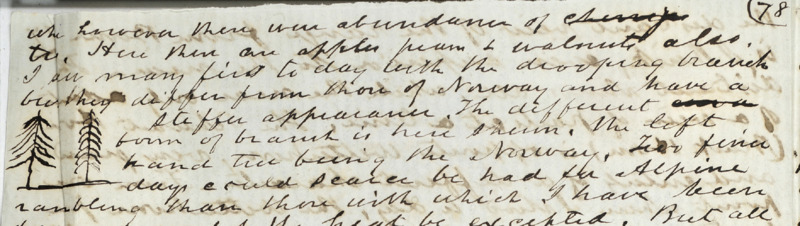 78
however there were abundance of cherrys
tc. Here there are apples pears & walnuts also.
I saw many firs to day with the drooping branch
but they differ from those of Norway and have a
stiffer appearance. The different
form of branch is here shewn. The left
hand tree being the Norway. Two finer
days could scarce be had for Alpine
rambling than those with which I have been
the heat be excepted. But all